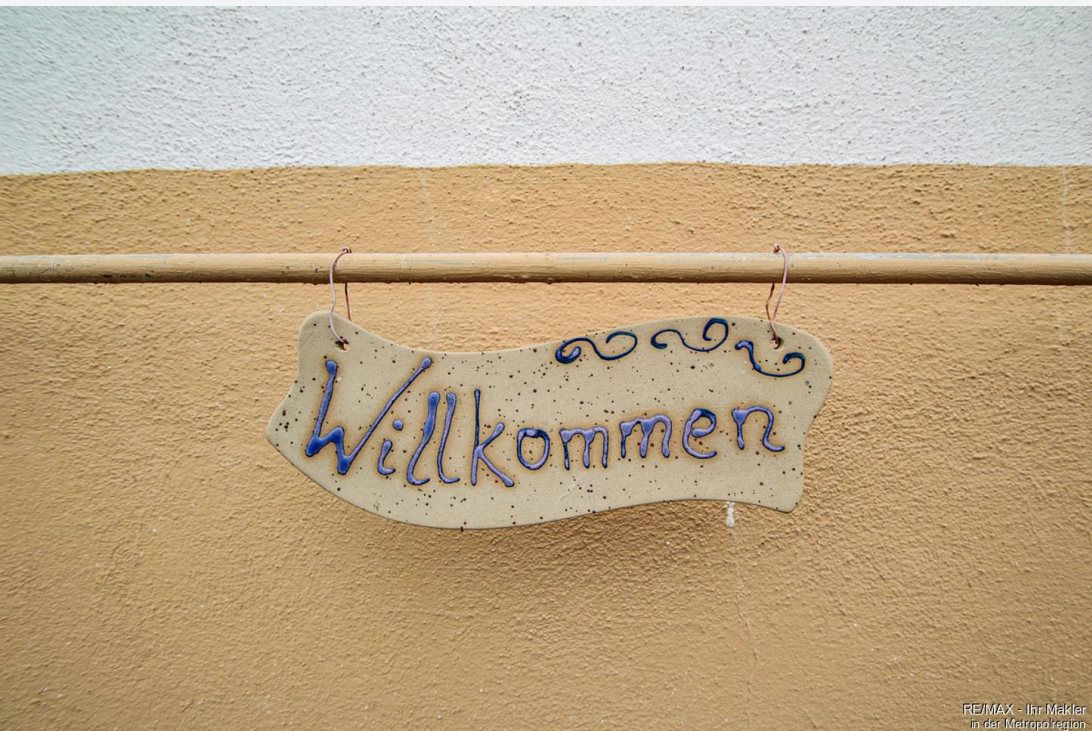 Willkommen
RE/MAX - Ihr Makler
in der Metropolregion